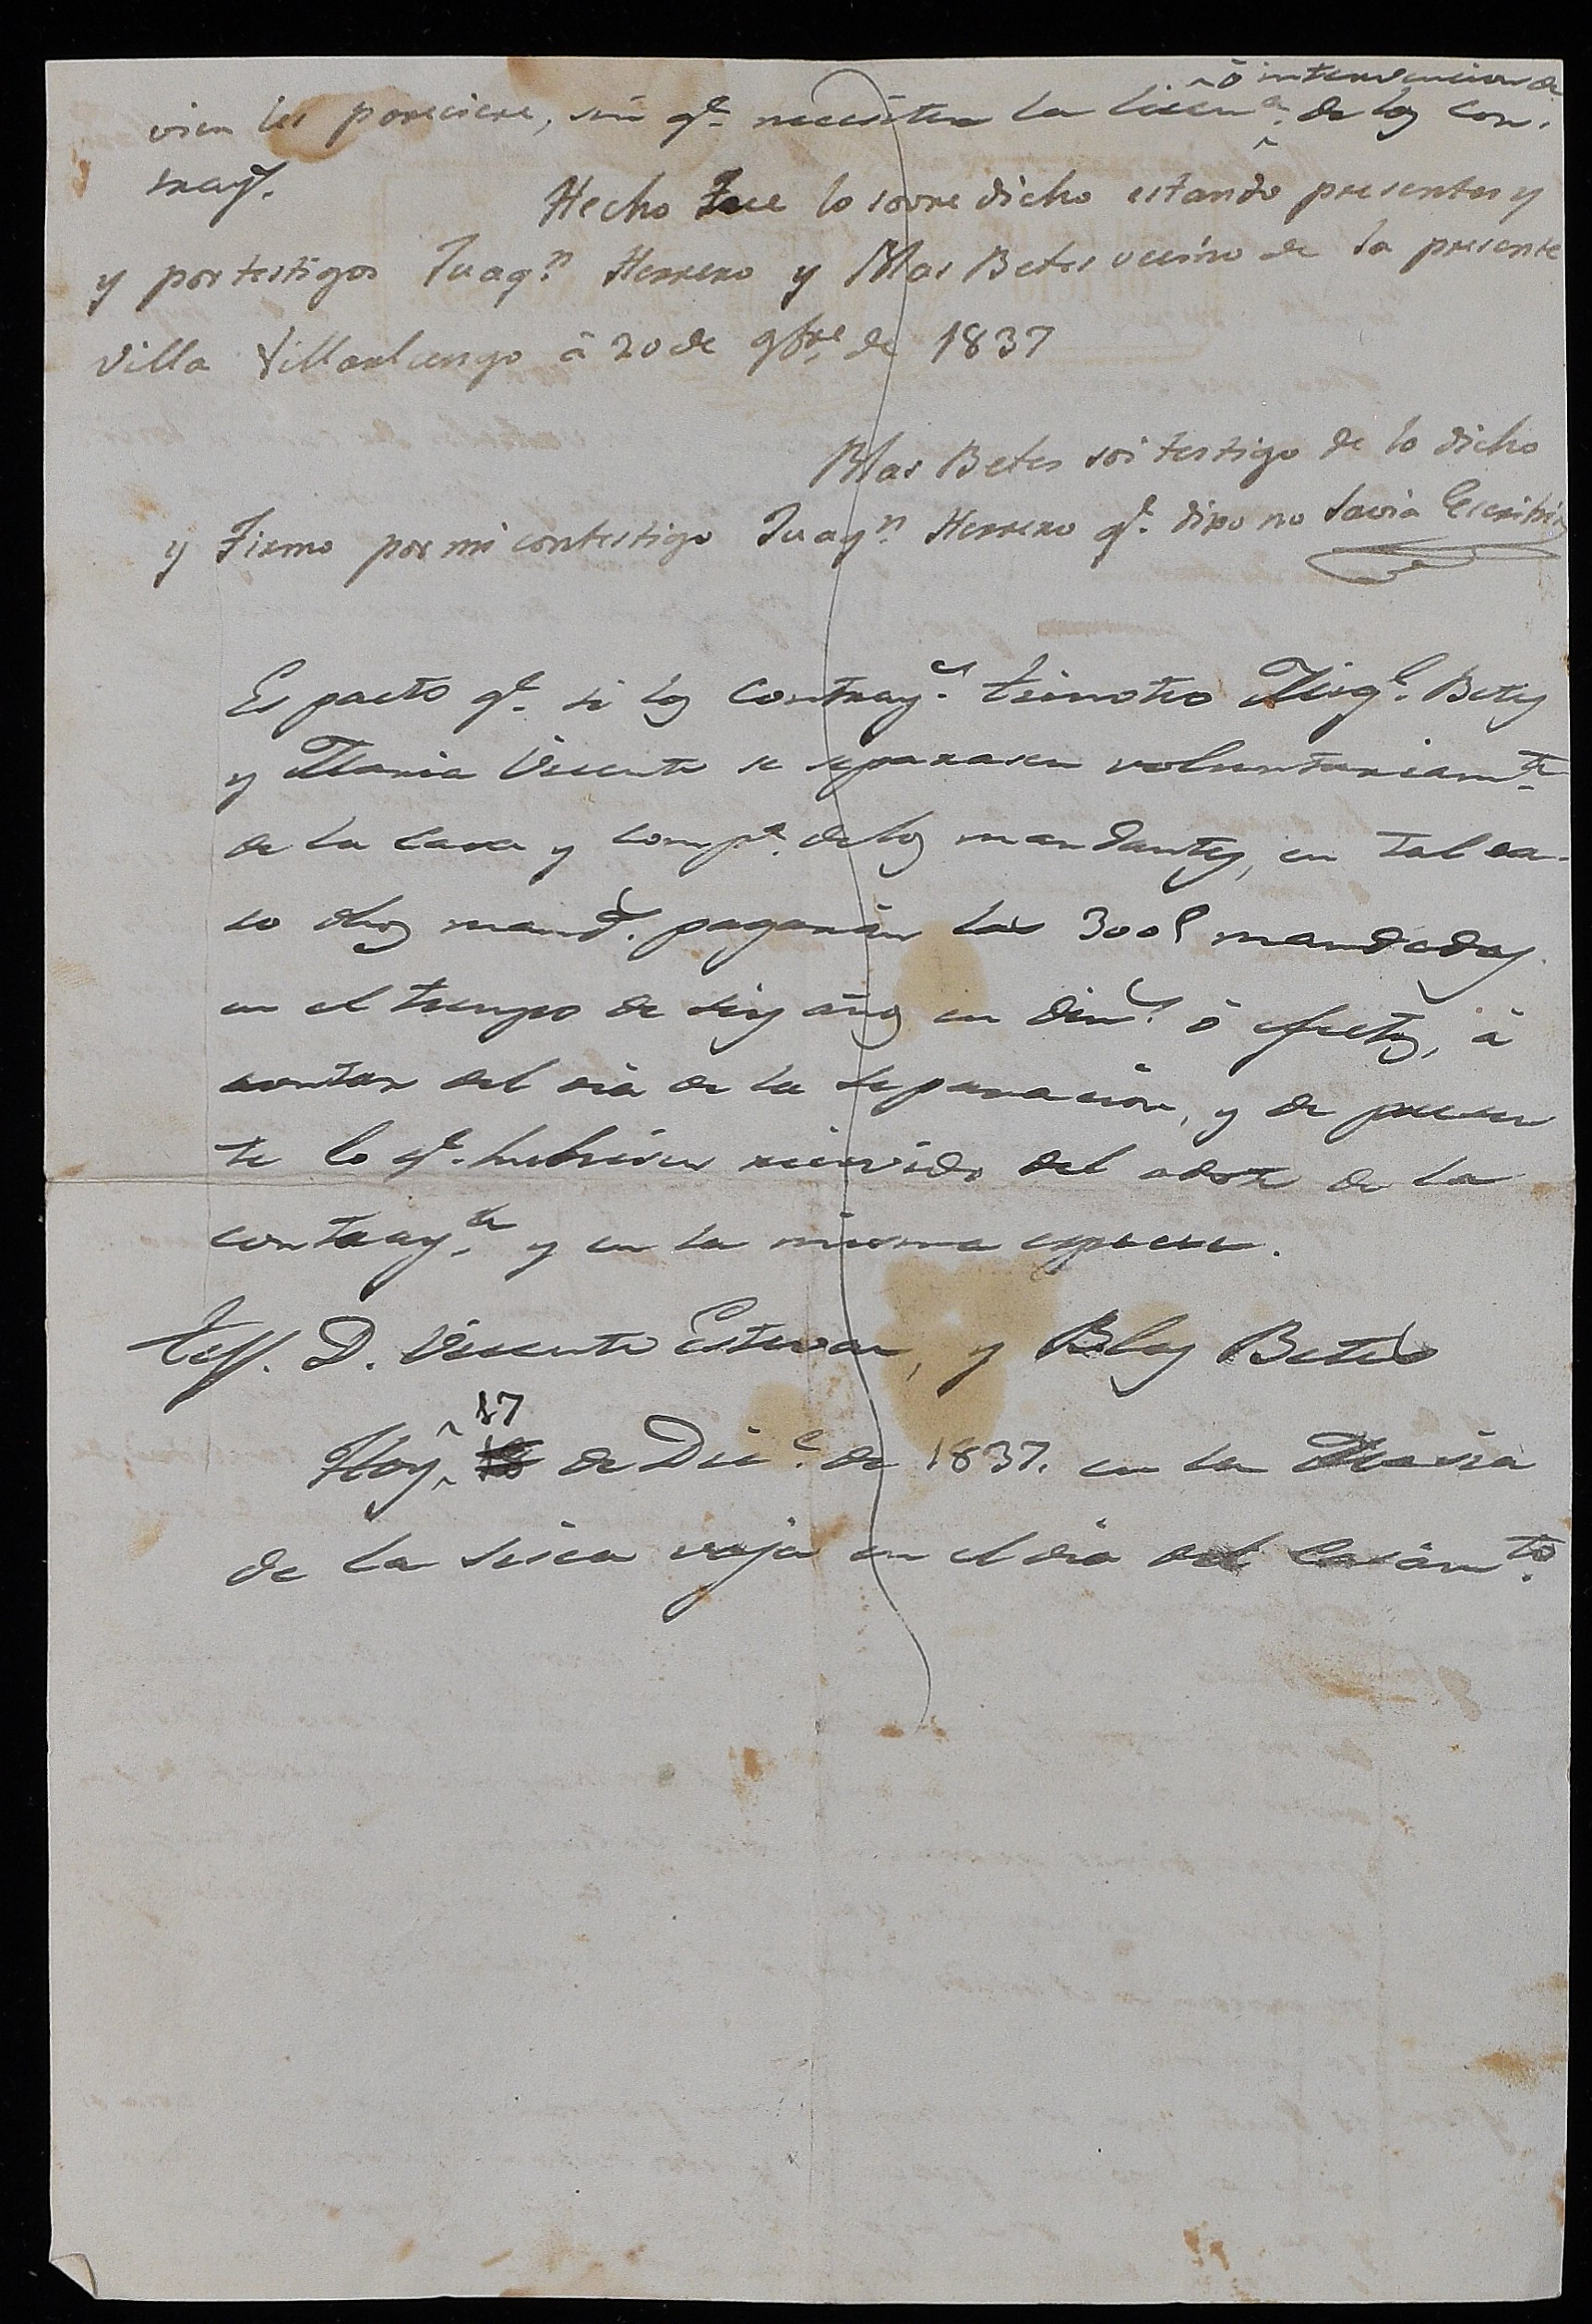 ô intervencion de
vien les pareciere, sin qe. necesiten la licena. de los con.
trayt.
Hecho Fue lo sovre dicho estando presentes y
y por testigos Juaqn. Herrero y Blas Betes vecino de la presente
villa Villarluengo â 20 de 9bre. de 1837
Blas Betes soi testigo de lo dicho
y Firmo por mi contestigo Juaqn. Herrero qe. dixo no savia Escribir
Es pacto qe. si los Contrayes. Migl. Betes
y Maria Vicente se separasen voluntariamte.
de la casa y compa. de los mandantes, en tal ca-
so dhos mandts. pagarán las 300 mandadas
en el tiempo de seis años en dino. ô efectos, â
contar del dia de la separacion, y de presen
te lo qe. hubiesen recivido del adote de la
contrayte. y en la misma especie.
D. Vicente Estevan, y Blas Betés
17
Hoy de Dice. de 1837. en la Masia
de la vaja en el dia del Casamto.